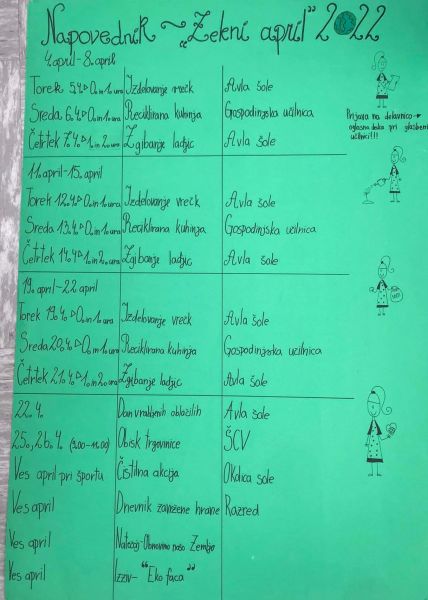 Napovednik ~ "Zeleni april" 2022
4. april - 8. april
Torek 5.4. 0. in 1. ura Izdelovanje vrečk Avla šole
Sreda 6.4. 0. in 1. ura Reciklirana kuhinja Gospodinjska učilnica
Četrtek 7.4. 1. in 2. ura Zgibanje ladjic Avla šole
Prijava na delavnico →
oglasna deska pri glasbeni
učilnici!!!
11. april - 15. april
Torek 12.4. 0. in 1. ura Izdelovanje vrečk Avla šole
Sreda 13.4. 0. in 1. ura Reciklirana kuhinja Gospodinjska učilnica
Četrtek 14.4. 1. in 2. ura Zgibanje ladjic Avla šole
19. april - 22. april
Torek 19.4. 0. in 1. ura Izdelovanje vrečk Avla šole
Sreda 20.4. 0. in 1. ura Reciklirana kuhinja Gospodinjska učilnica
Četrtek 21.4. 1. in 2. ura Zgibanje ladjic Avla šole
22.4. Dan oblačilih Avla šole
25., 26.4. Obisk trgovinice ŠCV
Ves april pri športu Čistilna akcija Okolica šole
Ves april Dnevnik zavržene hrane Razred
Ves april Natečaj - našo Zemljo
Ves april Izziv - "Eko faca"